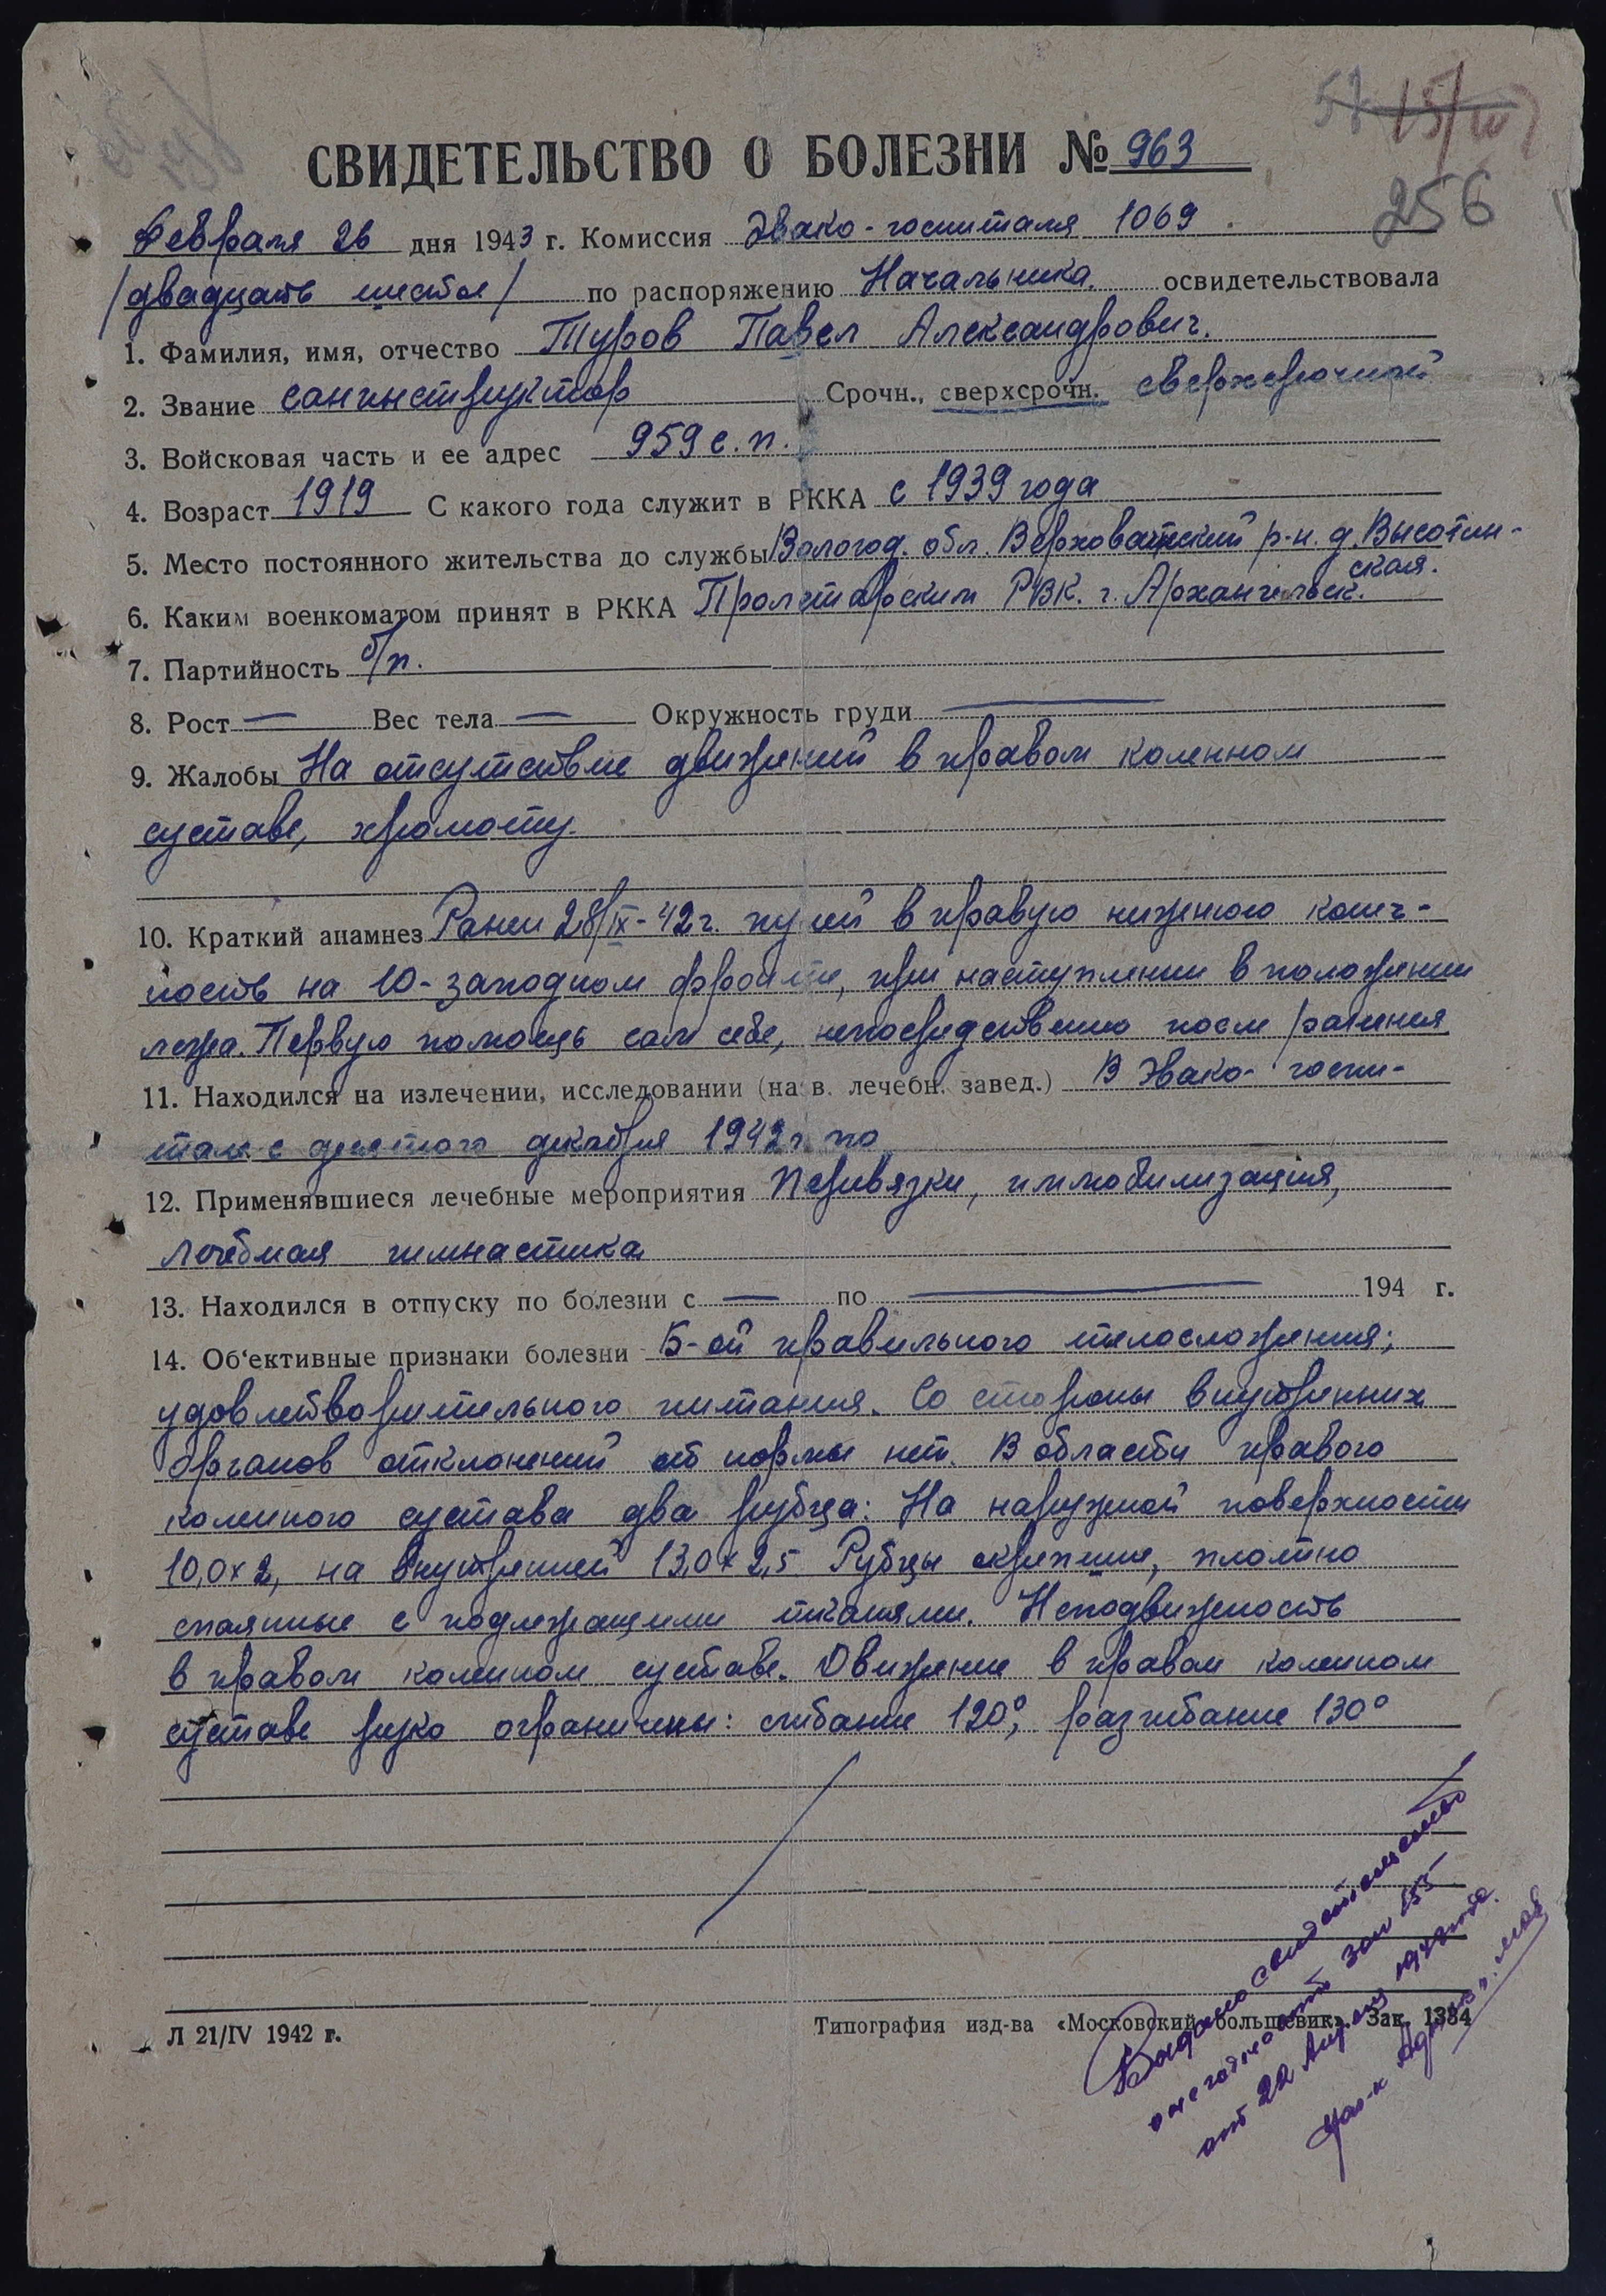 256
СВИДЕТЕЛЬСТВО О БОЛЕЗНИ № 963
Февраля 26 дня 1943 г. Комиссия Эвако-госпиталя 1069.
/двадцать шестое/ по распоряжению Начальника. освидетельствовала
1. Фамилия, имя, отчество Туров Павел Александрович.
2. Звание санинструктор Срочн., сверхсрочн. сверхсрочный
3. Войсковая часть и ее адрес 959 с. п.
4. Возраст 1919 С какого года служит в РККА с 1939 года
5. Место постоянного жительства до службы Вологод. обл. Верховажский р-н. д. Высотин-
ская.
6. Каким военкоматом принят в РККА Пролетарским РВК. г. Архангельск.
7. Партийность б/п.
8. Рост — Вес тела — Окружность груди —
9. Жалобы На отсутствие движений в правом коленном
суставе, хромоту.
10. Краткий анамнез Ранен 28/IX-42г. пулей в правую нижнюю конеч-
ность на Ю-западном фронте, при наступлении в положении
лежа. Первую помощь сам себе, непосредственно после ранения
11. Находился на излечении, исследовании (на в. лечебн. завед.) В Эвако-госпи-
тале с девятого декабря 1942г. по
12. Применявшиеся лечебные мероприятия Перевязки, иммобилизация,
лечебная гимнастика
13. Находился в отпуску по болезни с — по — 194 г.
14. Об'ективные признаки болезни Б-ой правильного телосложения;
удовлетворительного питания. Со стороны внутренних
органов отклонений от нормы нет. В области правого
коленного сустава два рубца: На наружной поверхности
10,0×2, на внутренней 13,0×2,5 Рубцы окрепшие, плотно
спаянные с подлежащими тканями. Неподвижность
в правом коленном суставе. Движение в правом коленном
суставе резко ограничены: сгибание 120°, разгибание 130°
Л 21/IV 1942 г.
Типография изд-ва «Московский большевик». Зак. 1334
Выдано свидетельство
о негодности за № 155
от 22 Апреля 194 года.